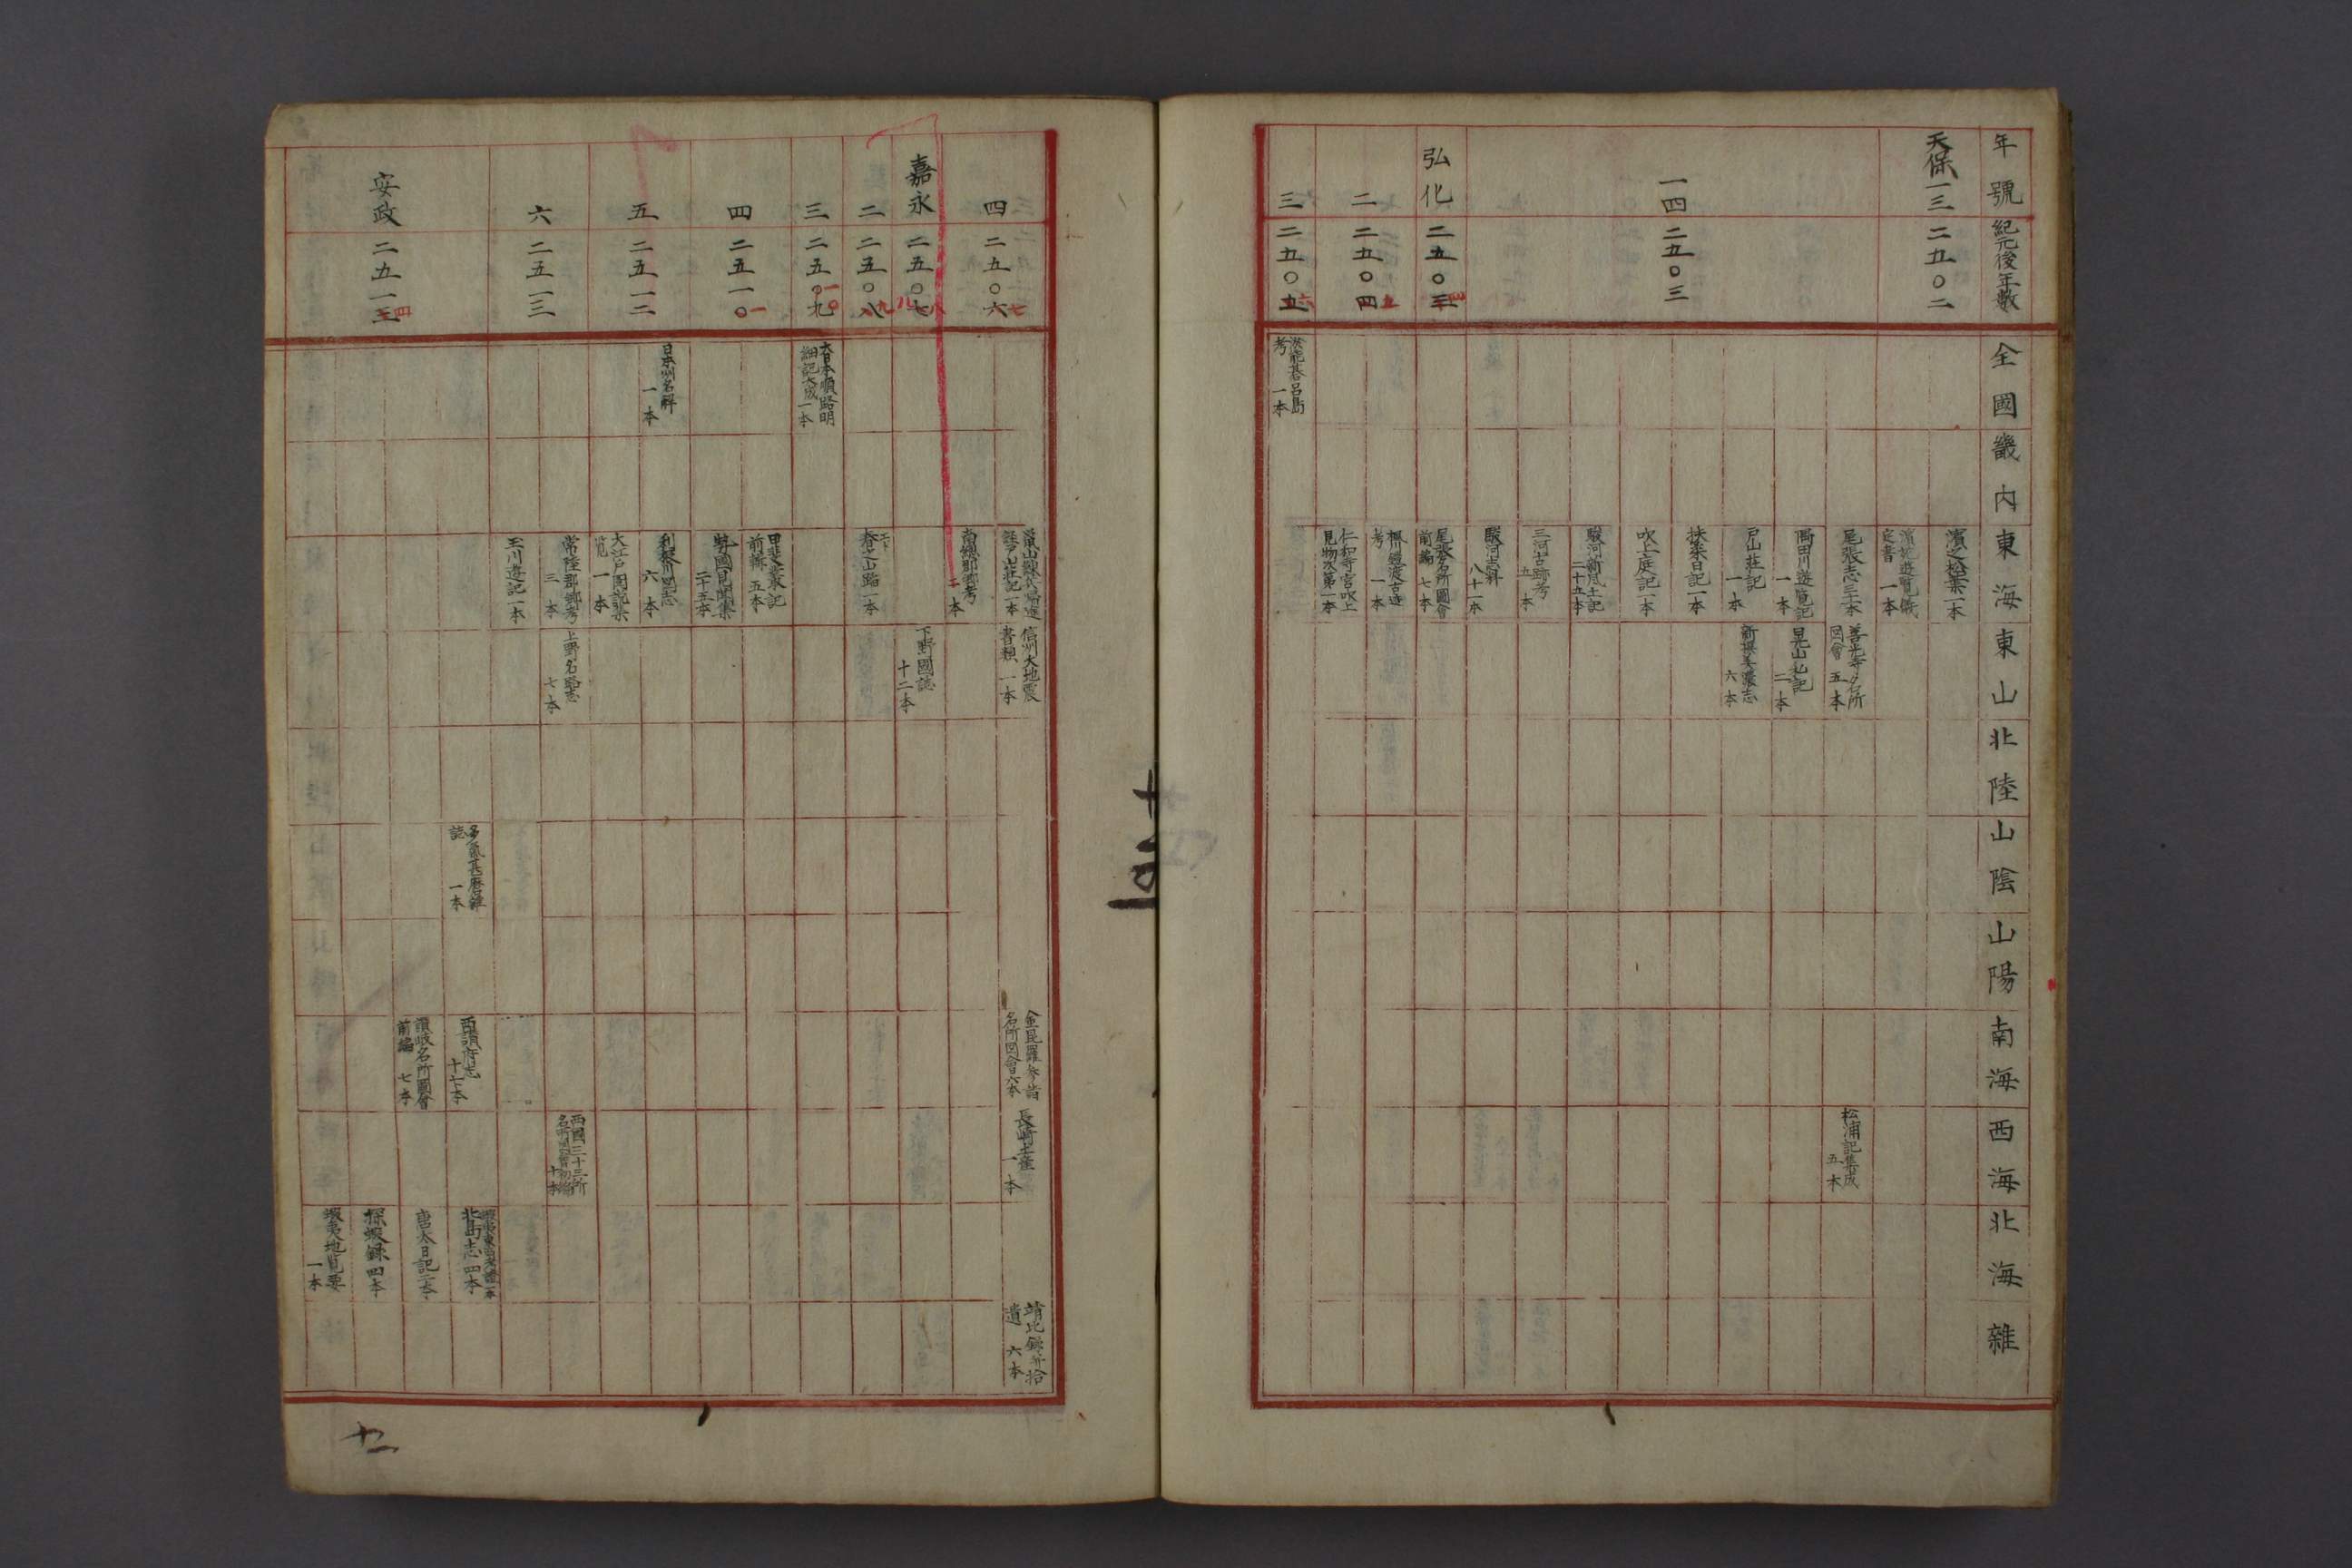 年號
紀元後年數
全國
畿内
東海
東山
北陸
山陰
山陽
南海
西海
北海
雜
天保一三
二五〇二
濱之松葉一本
濱苑遊覧儀
定書 一本
一四
二五〇三
尾張志三十本
善光寺名所
図會 五本
松浦記集成
五本
隅田川遊覧記
一本
晃山北記
二本
戸山莊記
一本
新撰美濃志
六本
扶桑日記一本
吹上庭記一本
駿河新風土記
二十五本
三河古跡考
五本
駿河志料
八十一本
弘化
二五〇三四
尾張名所圖會
前編 七本
二
二五〇四五
考 一本
仁和寺宮吹上
見物次第一本
三
二五〇五六
淤能碁呂島
考 一本
四
二五〇六七
信州大地震
書類 一本
金毘羅参詣
名所図會六本
長崎土産
一本
靖北録并拾
遺 六本
南總郡郷考
二本
嘉永
二五〇七八
下野國誌
十二本
二
二五〇八九
春之山路一本
三
二五〇九一〇
大日本順路明
細記大成一本
四
二五一〇一
甲斐叢記
前輯 五本
勢國見聞集
二十五本
五
二五一二
日本州名解
一本
利根川図志
六本
大江戸図説集
覧 一本
六
二五一三
常陸郡郷考
三本
上野名跡志
七本
西國三十三所
名所図會初編
十本
玉川遊記一本
安政
二五一三四
誌 一本
西讃府志
十七本
北島志四本
讃岐名所圖會
前編 七本
唐太日記二本
探蝦録四本
蝦夷地覧要
一本
十三
十二